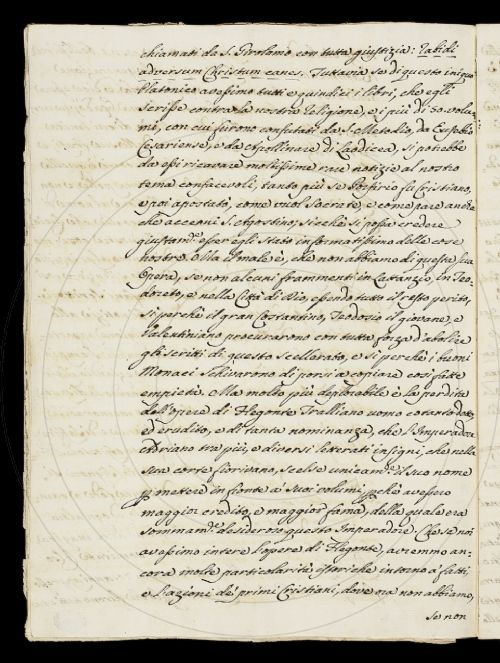 chiamati da S. Girolamo con tutta giustizia: rabidi
adversum Christum canes. Tuttavia se di questo iniquo
Platonico avessimo tutti e quindici i libri, che egli
scrisse contra la nostra religione, e i più di 30. volu-
mi, con cui furono confutati da S. Metodio, da Eusebio
Cesariense, e da Apollinare di Laodicea, si potrebbe
da essi ricavare moltissime rare notizie al nostro
tema confacevoli, tanto più se Porfirio fu Cristiano,
e poi apostatò, come vuol Socrate, e come pare anche
che accenni S. Agostino; sicchè si possa credere
giustam.e esser egli stato informatissimo delle cose
nostre. Ma il male è, che non abbiamo di questa sua
Opera, se non alcuni frammenti in Lattanzio, in Teo-
doreto, e nella Città di Dio, essendo tutto il resto perito,
si perchè il gran Costantino, Teodosio il giovane, e
Valentiniano procurarono con tutta forza d'abolire
gli scritti di questo scellerato, e si perchè i buoni
Monaci schivarono di porsi a copiare cosi fatte
empietà. Ma molto più deplorabile è la perdita
dell'opere di Flegonte Tralliano uomo cotanto dotto,
ed erudito, e di tanta nominanza, che l'Imperadore
Adriano tra più, e diversi letterati insigni, che nella
sua corte fiorivano, scelse unicam.e il suo nome
p mettere in fronte a' suoi volumi, pchè avessero
maggior credito, e maggior fama, della quale era
sommam.e desideroso questo Imperadore. Che se noi
avessimo intere l'opere di Flegonte, avremmo an-
cora molte particolarità istoriche intorno a' fatti,
e l'azioni de' primi Cristiani, dove ora non abbiamo,
se non